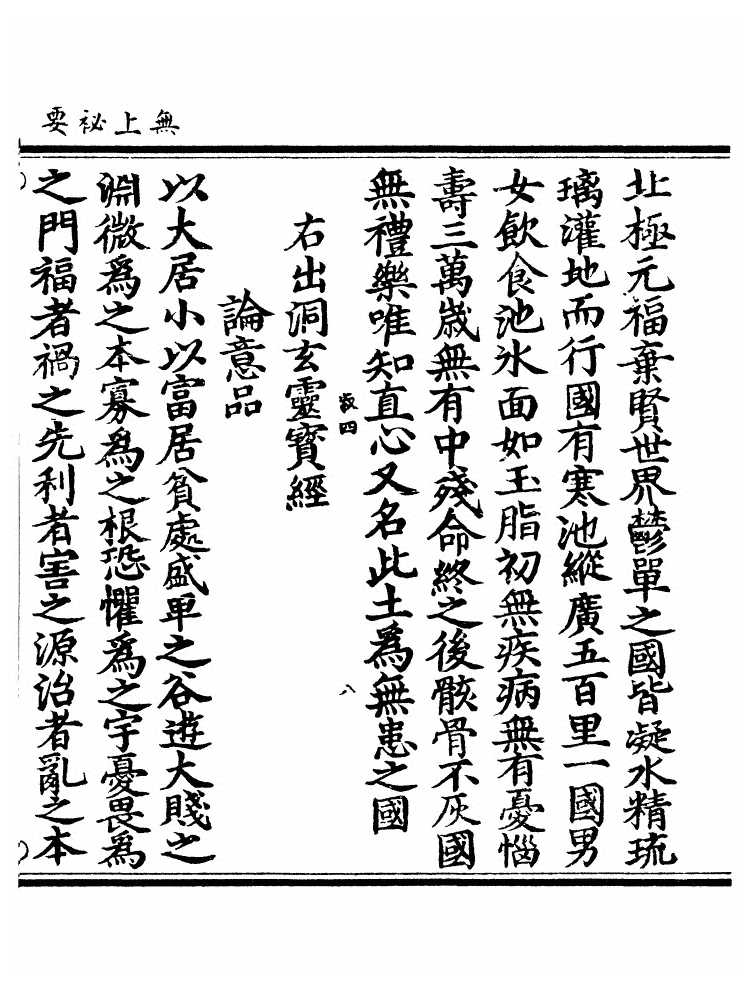 無上祕要
北極元福棄賢世界鬱單之國皆凝水精琉
璃灌地而行國有寒池縱廣五百里一國男
女飲食池水面如玉脂初無疾病無有憂惱
壽三萬歲無有中殘命終之後骸骨不灰國
無禮樂唯知直心又名此土為無患之國
叔四
八
右出洞玄靈寶經
論意品
以大居小以富居貧處盛卑之谷遊大賤之
淵微為之本寡為之根恐懼為之宇憂畏為
之門福者禍之先利者害之源治者亂之本